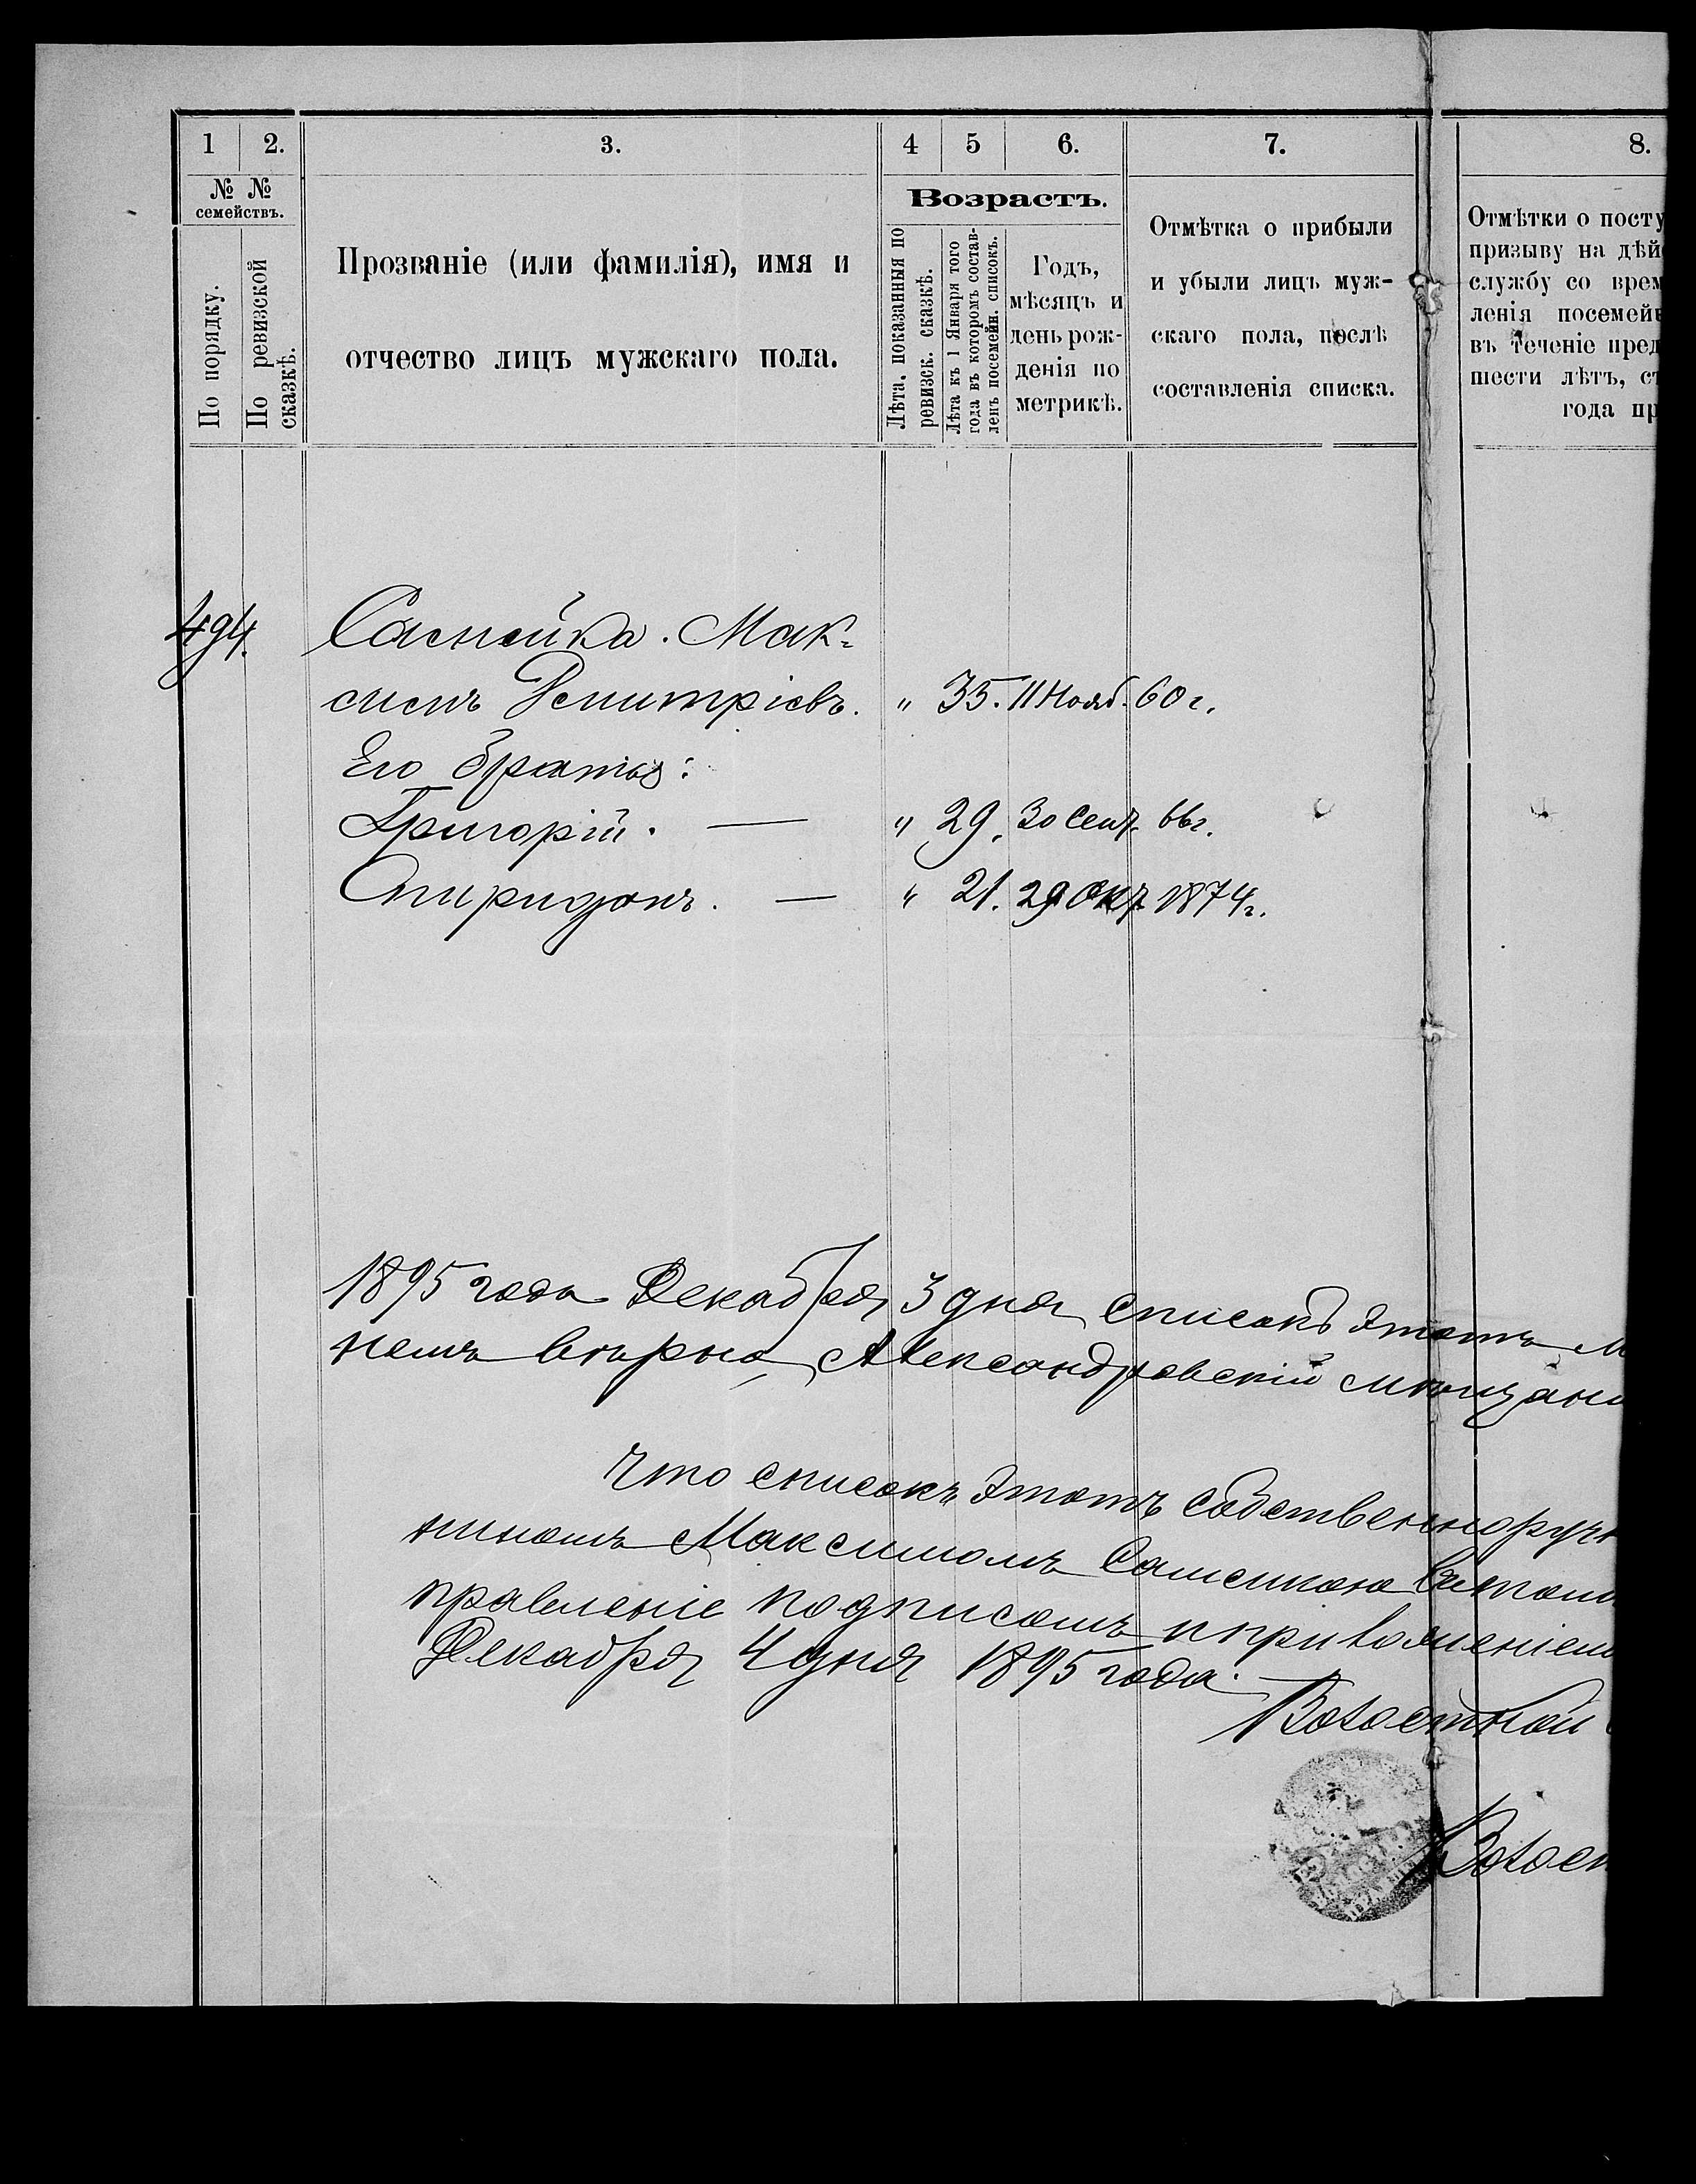 1 2. 3. 4 5 6. 7. 8.
№ №
семействъ.
По порядку.
По ревизской
сказкѣ.
Прозваніе (или фамилія), имя и
отчество лицъ мужскаго пола.
Возрастъ.
Лѣта, показанныя по
ревизск. сказкѣ.
Лѣта къ 1 Января того
года въ которомъ состав-
ленъ посемейн. списокъ.
Годъ,
мѣсяцъ и
день рож-
денія по
метрикѣ.
Отмѣтка о прибыли
и убыли лицъ муж-
скаго пола, послѣ
составленія списка.
Отмѣтки о посту
призыву на дѣй
службу со врем
ленія посемейн
въ теченіе пред
шести лѣтъ, съ
года пр
494. Мак-
симъ Демитріевъ. " 35. 11 Нояб. 60 г.
Его братья:
Григорій. — " 29. 30 Сент. 66 г.
Спиридонъ. — " 21. 29 Окт 1874 г.
1895 года Декабря 3 дня списокъ этотъ
вѣрно, Александровскій мѣщани
Что списокъ этотъ собственноруч
Максимомъ
правленіе подписомъ приложеніем
Декабря 4 дня 1895 года.
Волостной
Волос